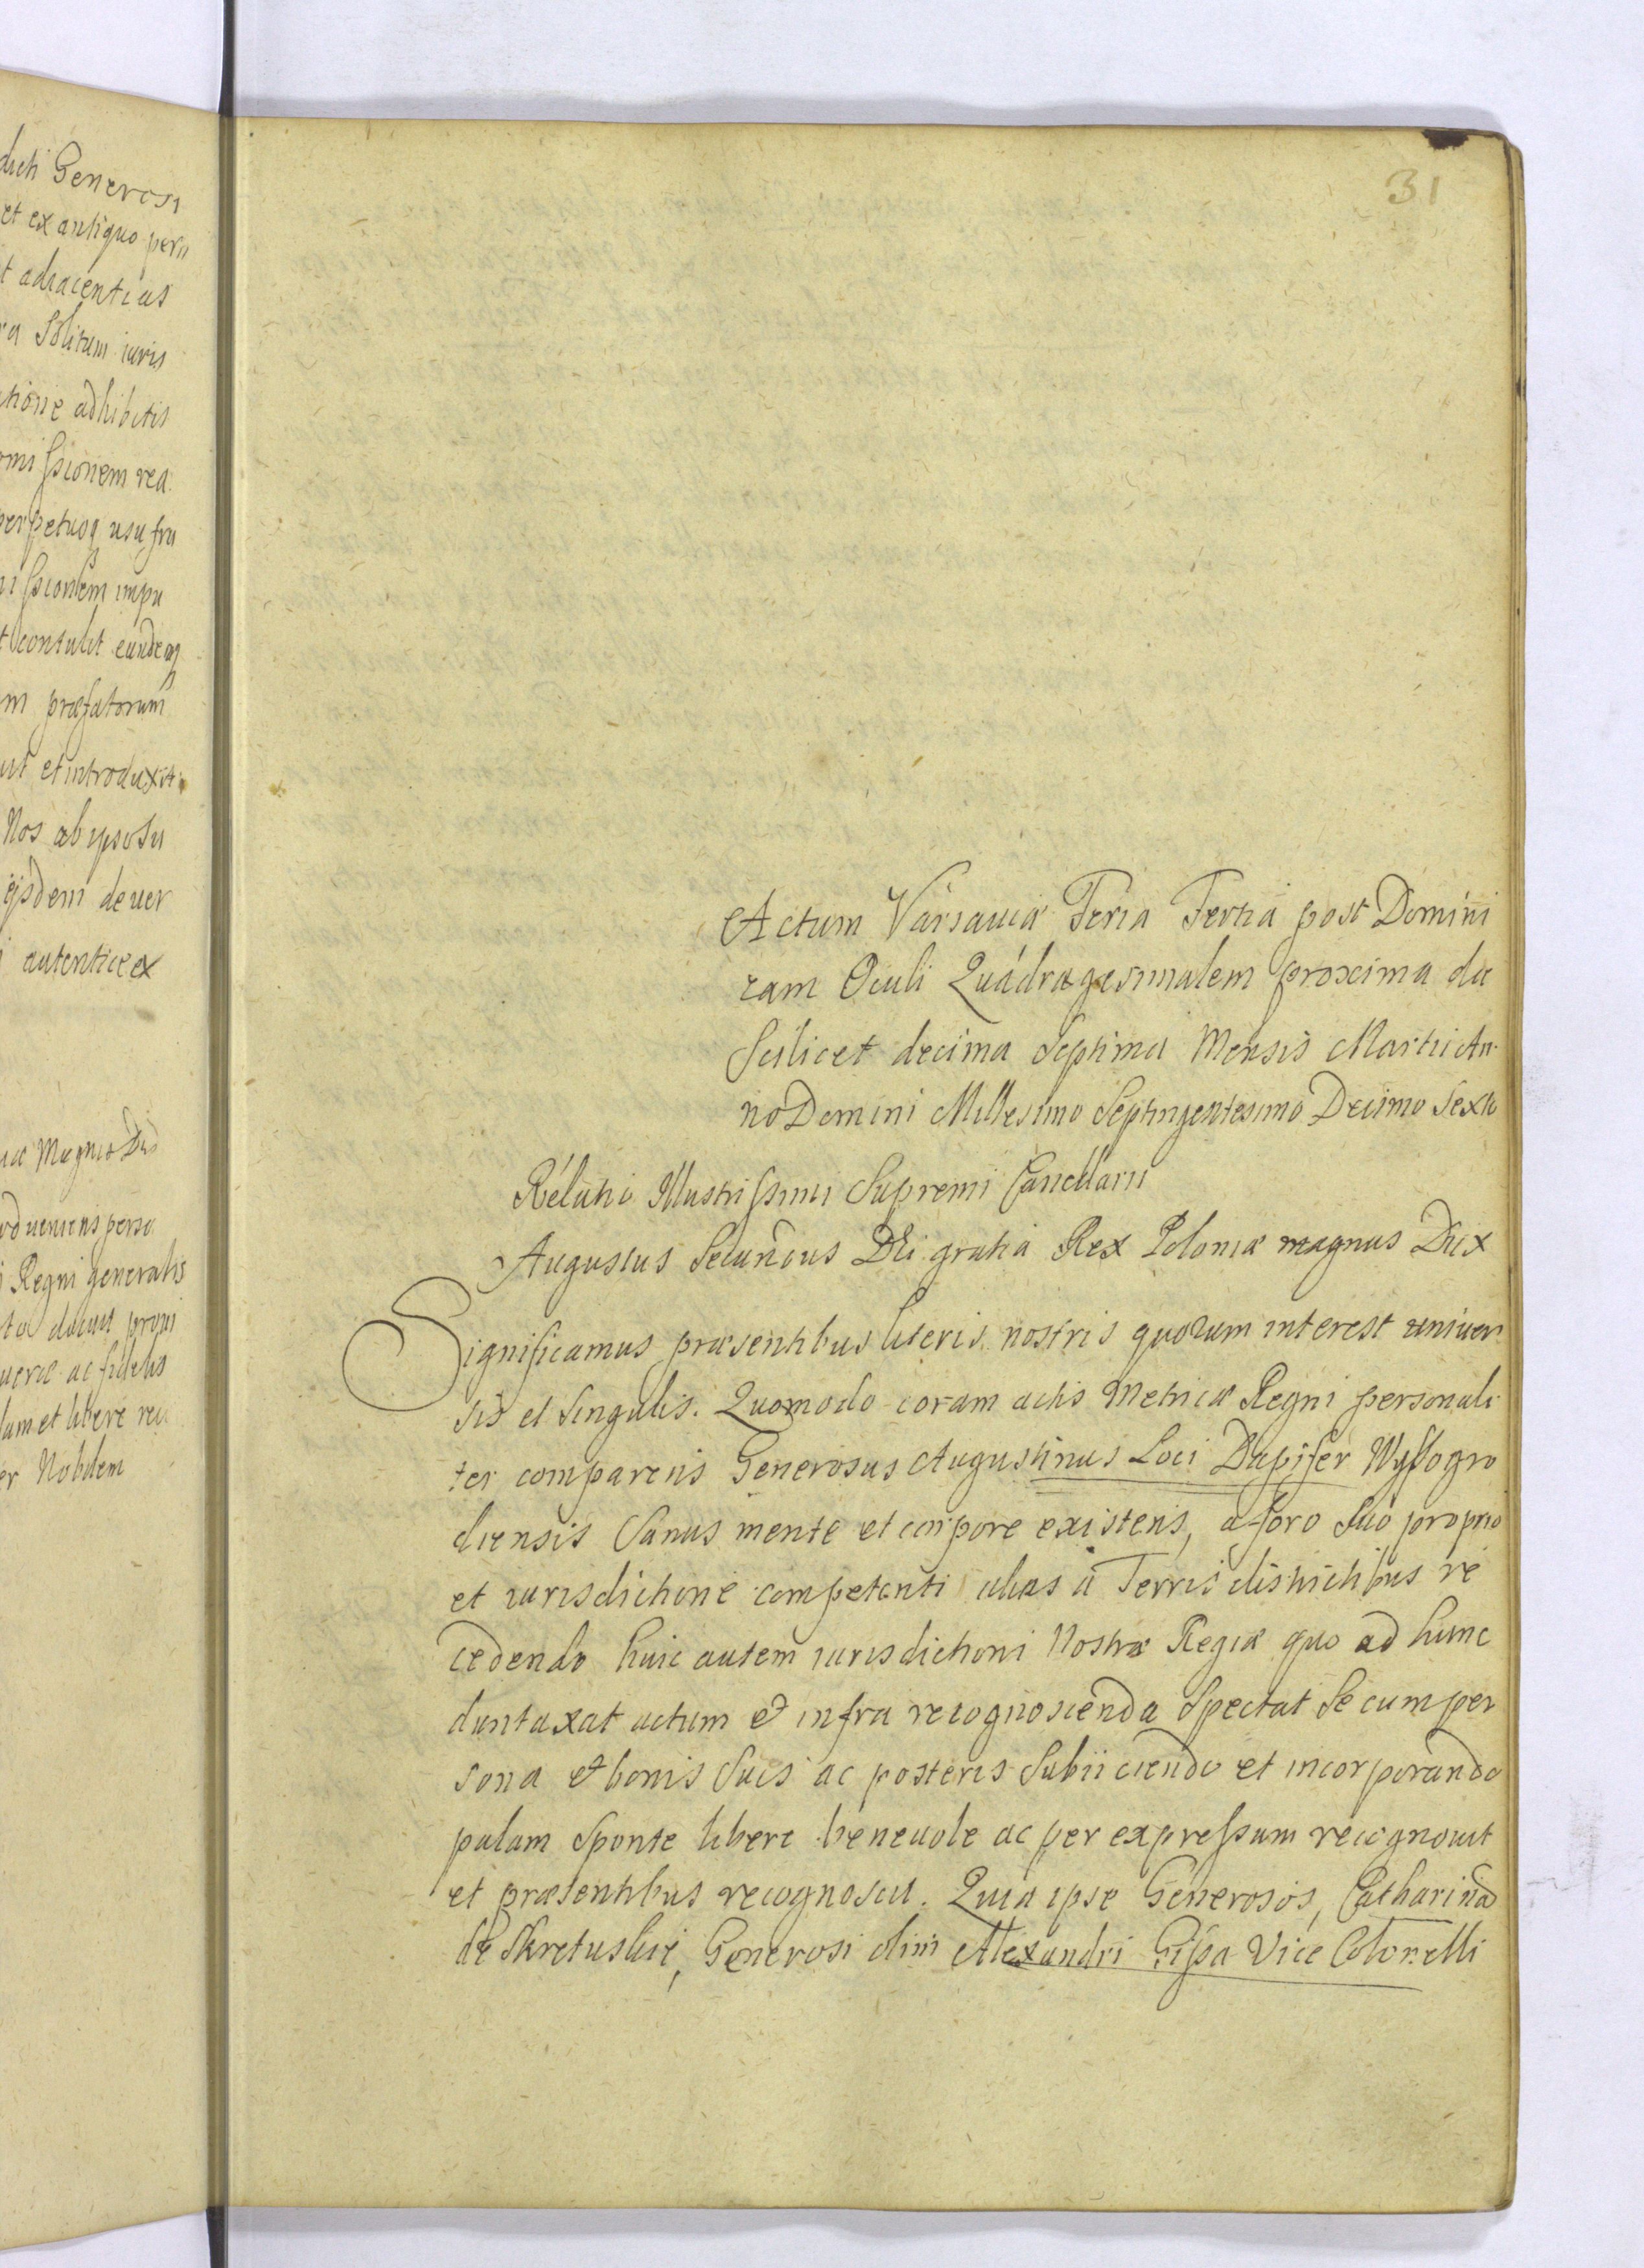 dicti Generosi
et ex antiquo per
t adiacentias
ra Solitum iuris
tione adhibitis
missionem rea
perpetuoq usu fru
issionem impu
t contulit eundemq
m præfatorum
ut et introduxit
Nos ab ipso su
ejsdem de uer
autentice ex
Magnus Dux
perso
Regni generalis
uere ac fidelis
lam et libere rec
er Nobilem
31
Actum Varsauiæ Feria Tertia post Domini
cam Oculi Quadragesimalem proxima die
Scilicet decima Septima Mensis Martii An
no Domini Millesimo Septingentesimo Decimo Sexto
Relatio Illustrissimi Supremi Cancellarii
Augustus Secundus Dei gratia Rex Poloniæ magnus Dux
Significamus præsentibus literis nostris quorum interest uniuer
sis et Singulis. Quomodo coram actis Metricæ Regni personali
ter comparens Generosus Augustinus Loci Dapifer Wyssogro
diensis Sanus mente et corpore existens, a foro Suo proprio
et iurisdictione competenti alias à Terris districtibus re
cedendo huic autem iurisdictioni Nostræ Regiæ quo ad hunc
duntaxat actum et infra recognoscenda Spectat Se cum per
sona et bonis Suis ac posteris Subiiciendo et incorporando
palam Sponte libere beneuole ac per expressum recognouit
et præsentibus recognoscit. Quia ipse Generosos, Catharina
de Skretuskie, Generosi olim Alexandri Gissa Vice Colonelli